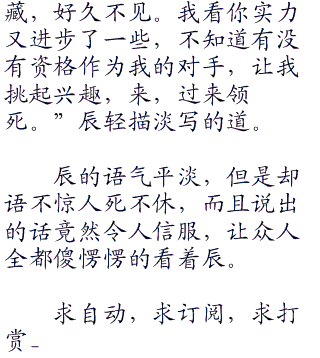 藏，好久不见。我看你实力
又进步了一些，不知道有没
有资格作为我的对手，让我
挑起兴趣，来，过来领
死。”辰轻描淡写的道。
辰的语气平淡，但是却
语不惊人死不休，而且说出
的话竟然令人信服，让众人
全都傻愣愣的看着辰。
求自动，求订阅，求打
赏_